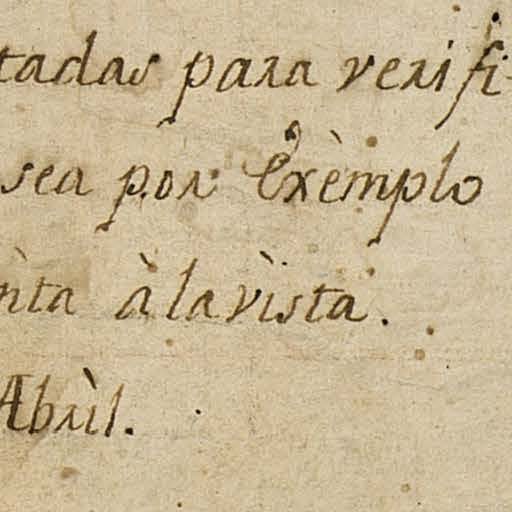 tadas para verifi
sea por Exèmplo
nta à la vista.
Abril.